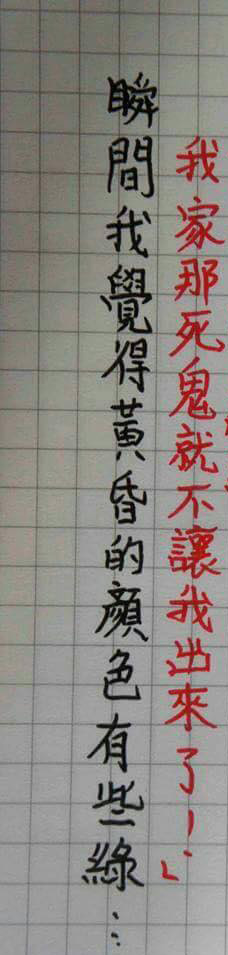 我家那死鬼就不讓我出來了！」
瞬間我覺得黃昏的顏色有些綠…